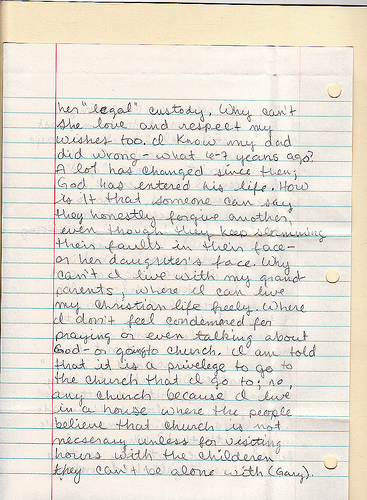 her "legal" custody. Why can't
she love and respect my
wishes too. I know my dad
did wrong - what 6-7 years ago?
A lot has changed since then;
God has entered his life. How
is It that someone can say
they honestly forgive another
even though they keep slamming
their faults in their face -
or her daughter's face. Why
can't I live with my grand
parents, where I can live
my Christian life freely. Where
I don't feel condemered for
praying or even talking about
God - or going to church. I am told
that it is a privelege to go to
the church that I go to; no,
any church because I live
in a house where the people
believe that church is not
necesary unless for visiting
hours with the childeren
they can't be alone with (Gary).